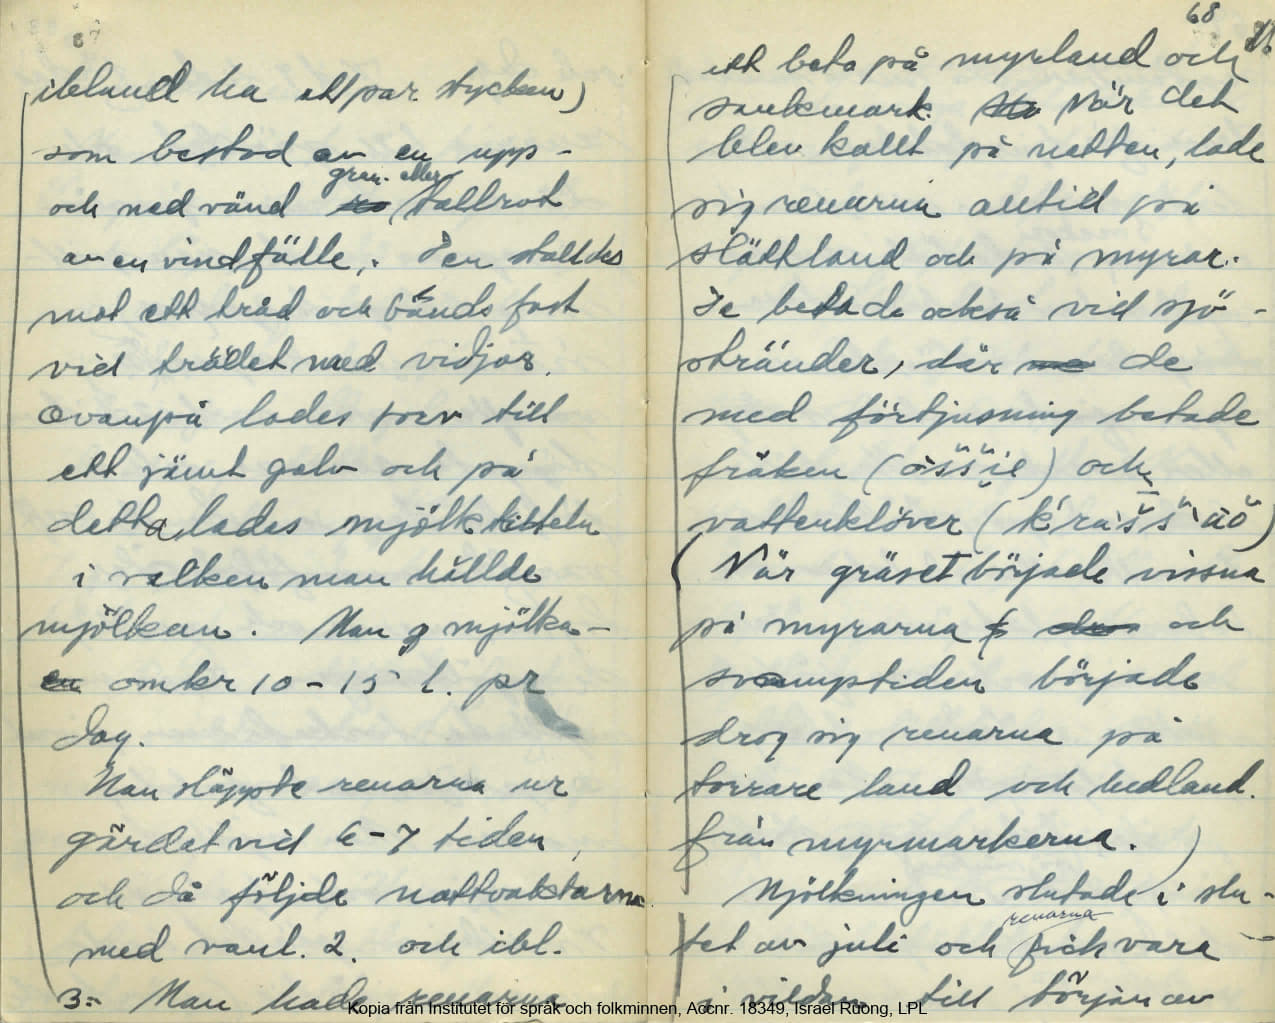 67
ibland ha ett par stycken)
som bestod av en upp-
och ned vänd gran- eller tallrot
av en vindfälle. Den ställdes
mot ett träd och bands fast
vid trädet med vidjor.
Ovanpå lades torv till
ett jämt golv och på
detta lades mjölkkitteln
i vilken man hällde
mjölken. Man mjölka-
omkr 10-15 l. pr
dag.
Man släppte renarna ur
gärdet vid 6-7 tiden,
och då följde nattvaktarna
med vanl. 2. och ibl.
3. Man hade renarna
68
ett beta på myrland och
sankmark. När det
blev kallt på natten, lade
sig renarna alltid på
slättland och på myrar.
De betade också vid sjö-
stränder, där de
med förtjusning betade
fräken ( ) och
vattenklöver ( )
(När gräset började vissna
på myrarna och
svamptiden började
drog sig renarna på
torrare land och hedland.
från myrmarkerna. )
Mjölkningen slutade i slu-
tet av juli och renarna fick vara
i vildren till början av
Kopia från Institutet för språk och folkminnen, Accnr. 18349, Israel Ruong, LPL